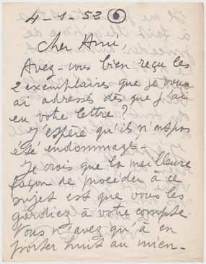 4-1-52 6
Cher Ami,
Avez-vous bien reçu les
2 exemplaires que je vous
ai adressés dès que j'ai
eu votre lettre?
J'espère qu'il n'a pas
été endommagé.
Je crois que la meilleure
façon de procéder à ce
sujet est que vous les
gardiez à votre compte
Vous n'avez qu'à en
porter huit au mien.